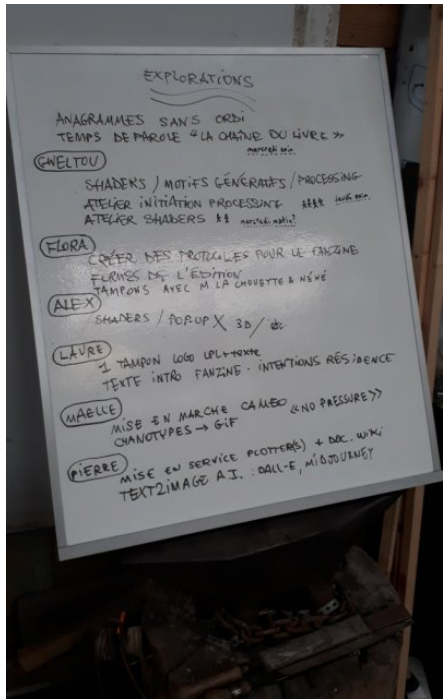 EXPLORATIONS
ANAGRAMMES SANS ORDI
TEMPS DE PAROLE "LA CHAÎNE DU LIVRE»
mercredi soir
GWELTOU
SHADERS / MOTIFS GÉNÉRATIFS / PROCESSING
ATELIER INITIATION PROCESSING *** jeudi soir
ATELIER SHADERS ** mercredi matin?
FLORA
CRÉER DES PROTOCOLES POUR LE FANZINE
FORMES DE L'ÉDITION
TAMPONS AVEC M. LA CHOUETTE & NÉNÉ
ALEX
SHADERS / POP-UP X 3D / etc
LAURE
1 TAMPON LOGO LPL + texte
TEXTE INTRO FANZINE. INTENTIONS RÉSIDENCE
MAELLE
MISE EN MARCHE CAMEO «NO PRESSURE»
CYANOTYPES → GIF
PIERRE
MISE EN SERVICE PLOTTER(S) + DOC. WIKI
TEXT2IMAGE A.I. : DALL-E, MIDJOURNEY